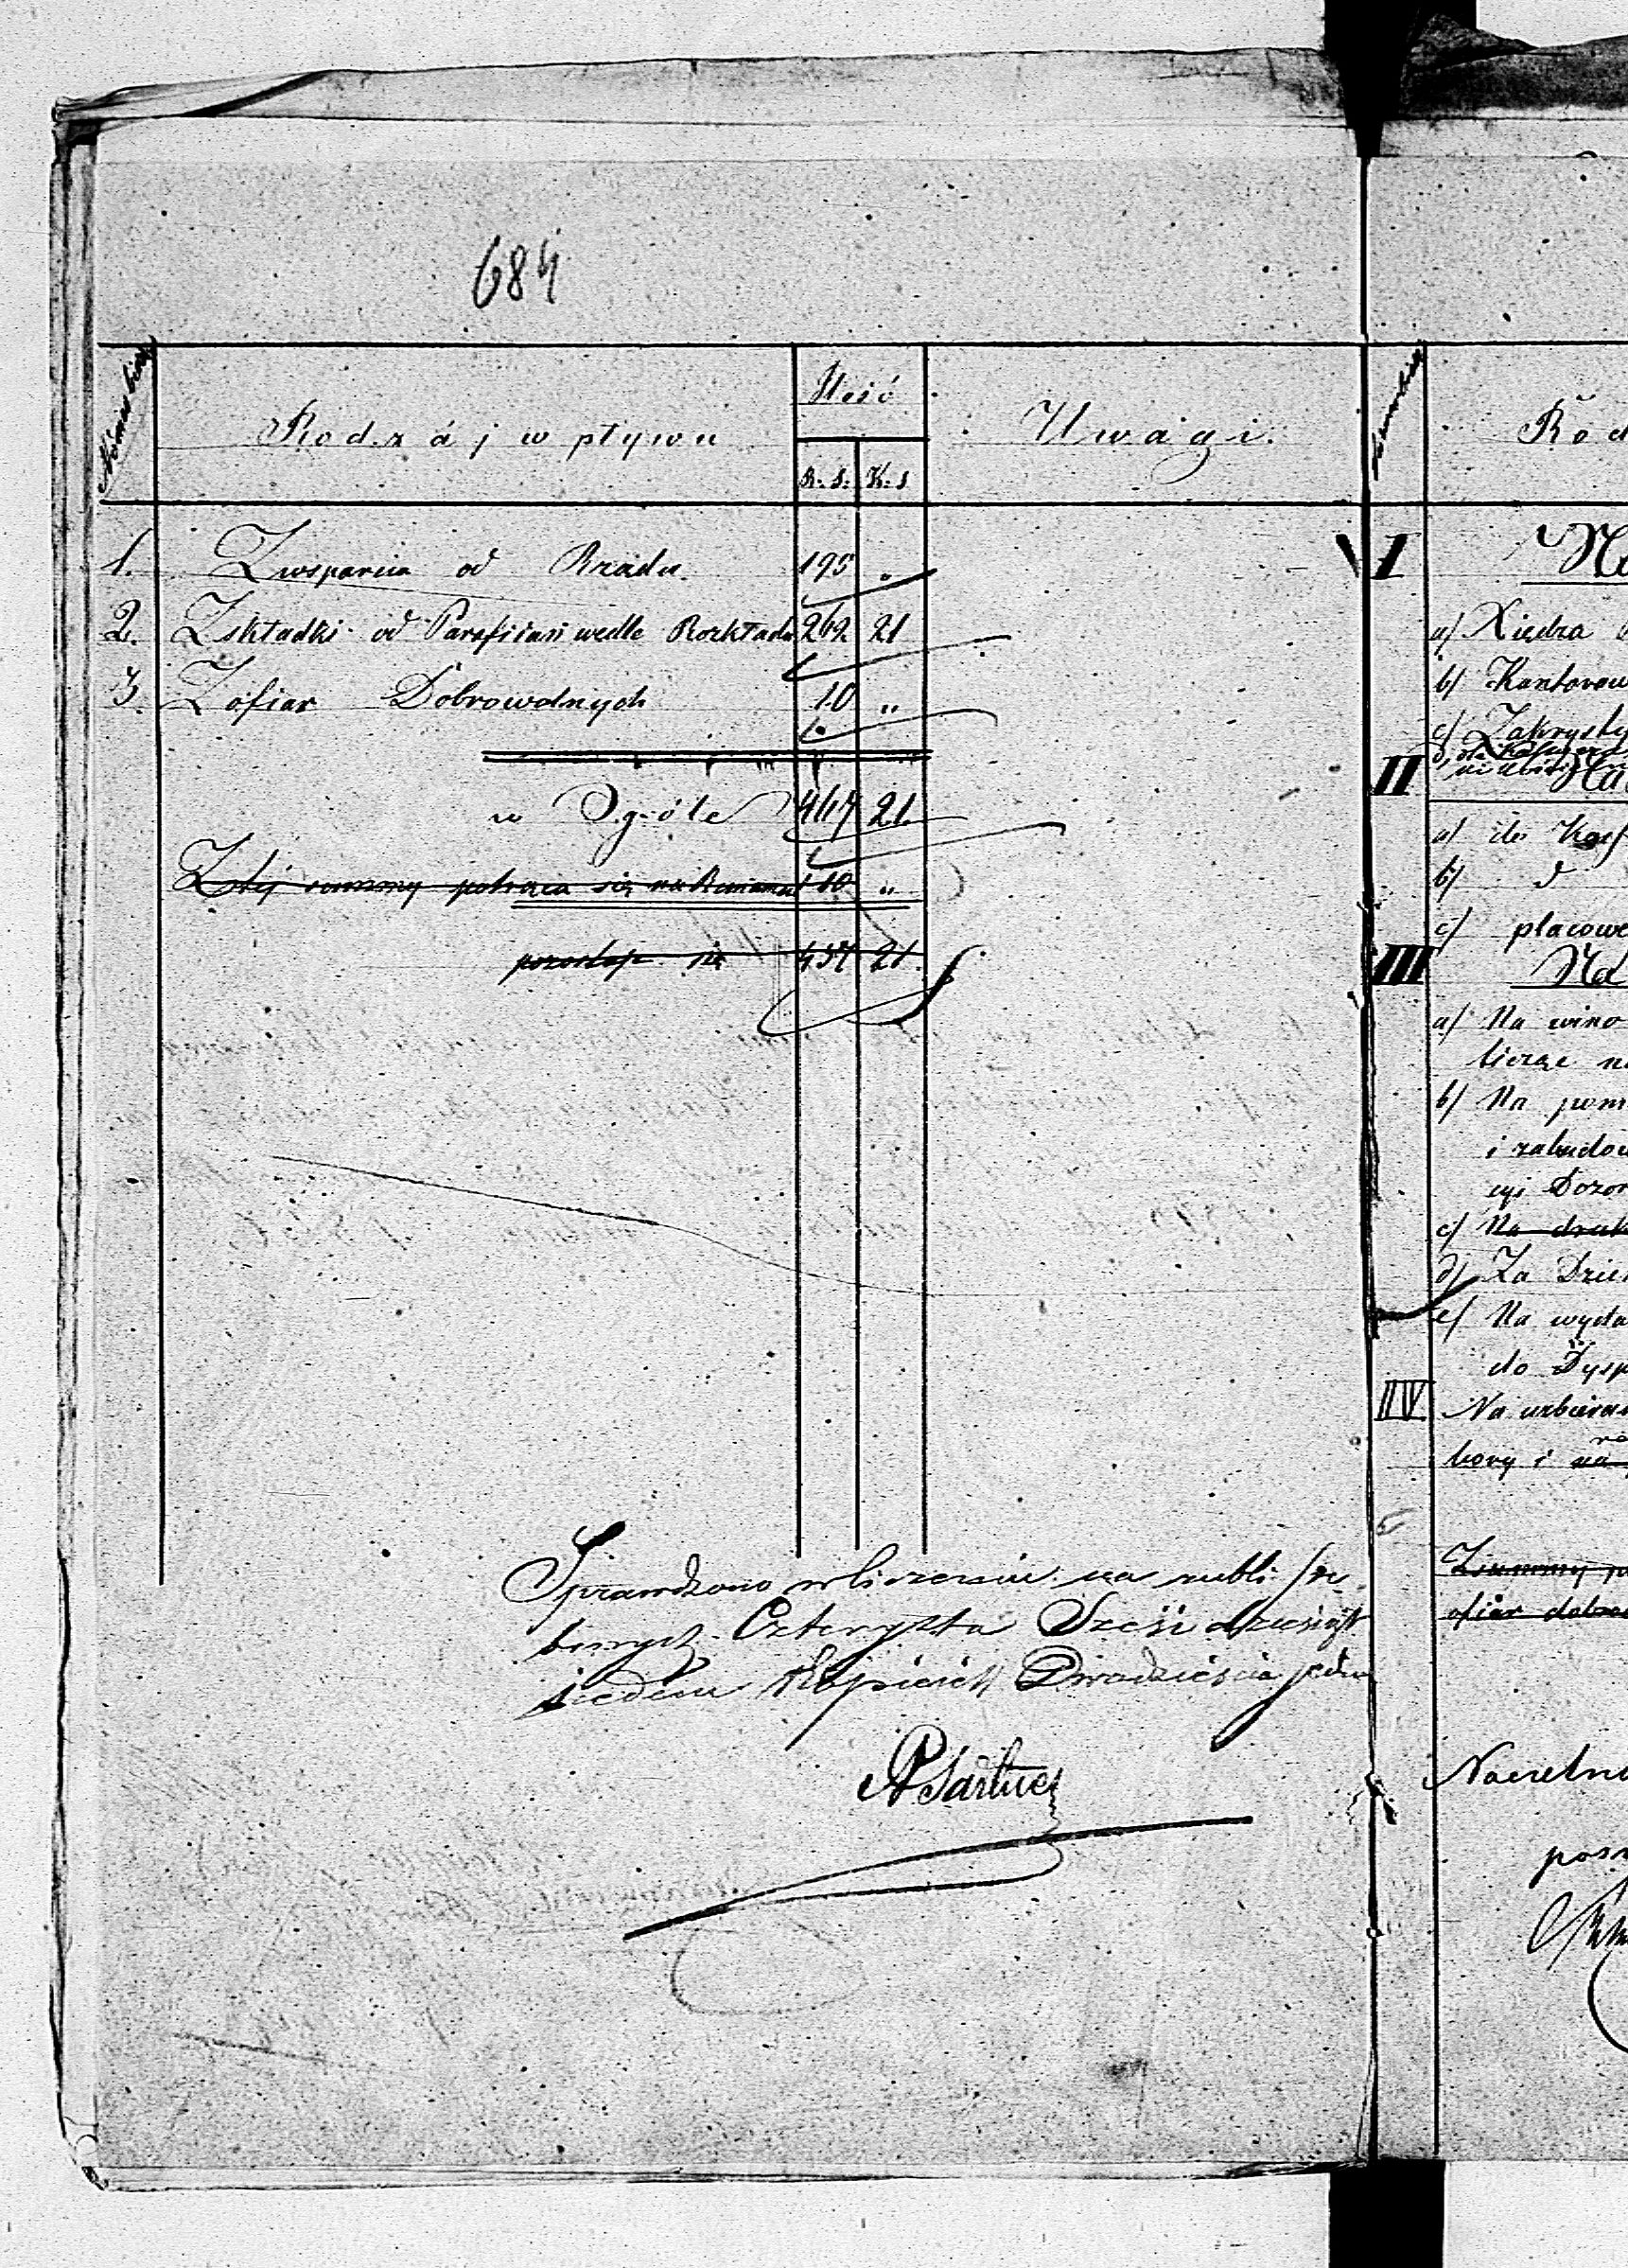 684
Rodzáj wpływu
Ilość
Uwagi.
R. S. K. S
Rod
1. Z wsparcia od Rządu. 195 "
2. Z składki od Parafiian wedle Rozkładu 262. 21
3. Z ofiar Dobrowolnych 10 "
w Ogóle 467 21.
Z téj summy potrąca się na 10 "
pozostaje się 457 21.
Sprawdzono w liczeniu na rubli sre
brnych Czterysta Sześćdziesiąt
siedem kopiejek Dwadzieścia jedna
I
a) Xiędza
b) Kantorow
c) Zakrysty
II
a) do Kass
b) d
c) placowe
III Na
a) Na wino
licząc na
b) Na pom
i zabudow
cyi Dozor
c) Na druk
d) Za Dzien
e) Na wyda
do Dysp
IV Na ubieran
bory i na
Z summy po
ofiar dobro
Naczelni